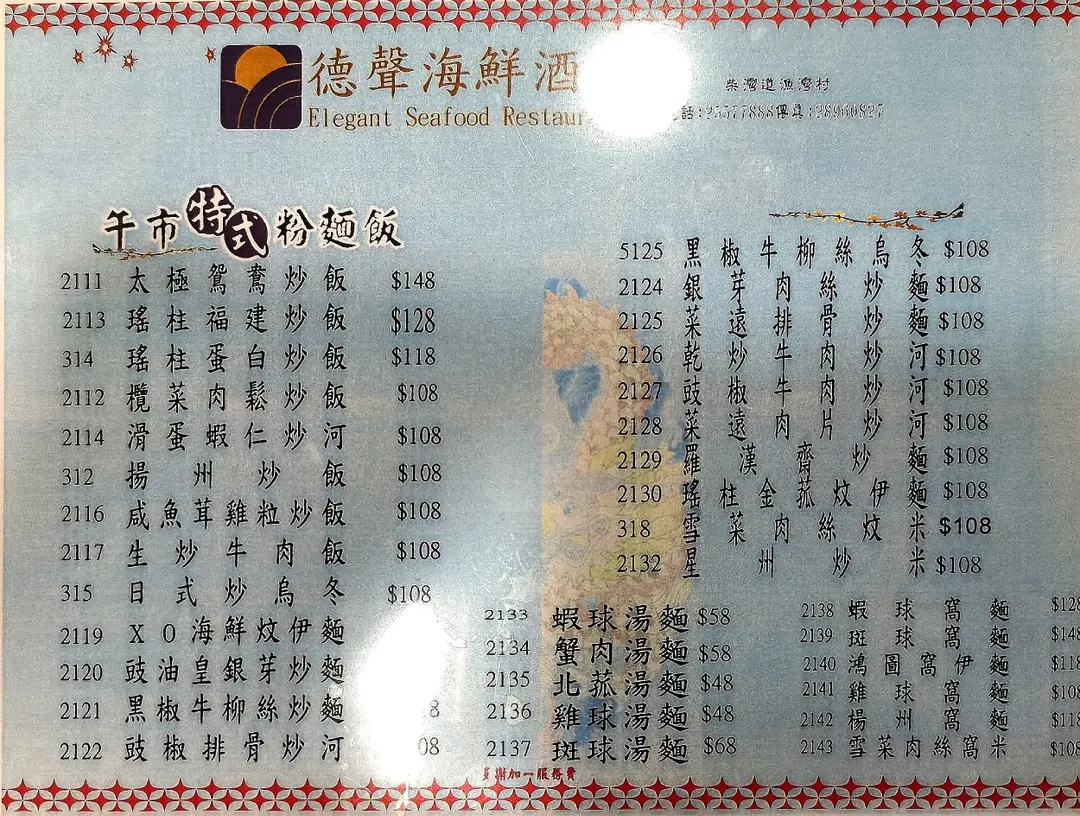 德聲海鮮酒
Elegant Seafood Restau
柴灣道漁灣村
話:25577888傳真:28960827
午市特式粉麵飯
2111 太極鴛鴦炒飯 $148
2113 瑤柱福建炒飯 $128
314 瑤柱蛋白炒飯 $118
2112 欖菜肉鬆炒飯 $108
2114 滑蛋蝦仁炒河 $108
312 揚州炒飯 $108
2116 咸魚茸雞粒炒飯 $108
2117 生炒牛肉飯 $108
315 日式炒烏冬 $108
2119 XO海鮮炆伊麵
2120 豉油皇銀芽炒麵
2121 黑椒牛柳絲炒麵 8
2122 豉椒排骨炒河 08
5125 黑椒牛柳絲烏冬 $108
2124 銀芽肉絲炒麵 $108
2125 菜遠排骨炒麵 $108
2126 乾炒牛肉炒河 $108
2127 豉椒牛肉炒河 $108
2128 菜遠肉片炒河 $108
2129 羅漢齋炒麵 $108
2130 瑤柱金菰炆伊麵 $108
318 雪菜肉絲炆米 $108
2132 星州炒米 $108
2133 蝦球湯麵 $58
2134 蟹肉湯麵 $58
2135 北菰湯麵 $48
2136 雞球湯麵 $48
2137 斑球湯麵 $68
2138 蝦球窩麵 $128
2139 斑球窩麵 $148
2140 鴻圖窩伊麵 $118
2141 雞球窩麵 $108
2142 楊州窩麵 $118
2143 雪菜肉絲窩米 $108
謝加一服務費